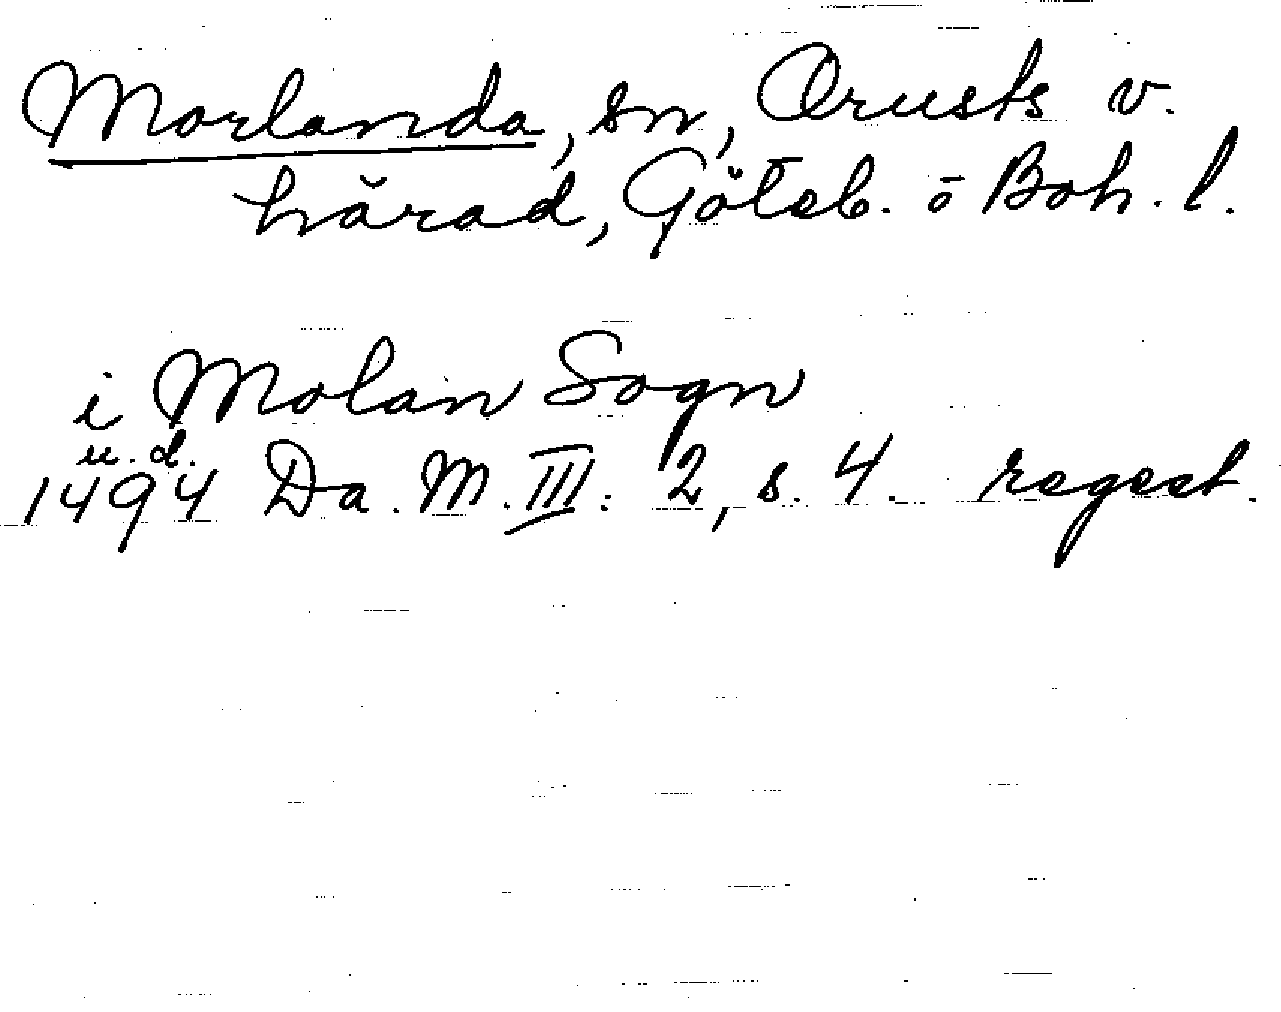 Morlanda, sn, Orusts v.
härad, Göteb. o Boh. l.
i Molan Sogn
u. d.
1494 Da. M. III: 2, s. 4. regest.